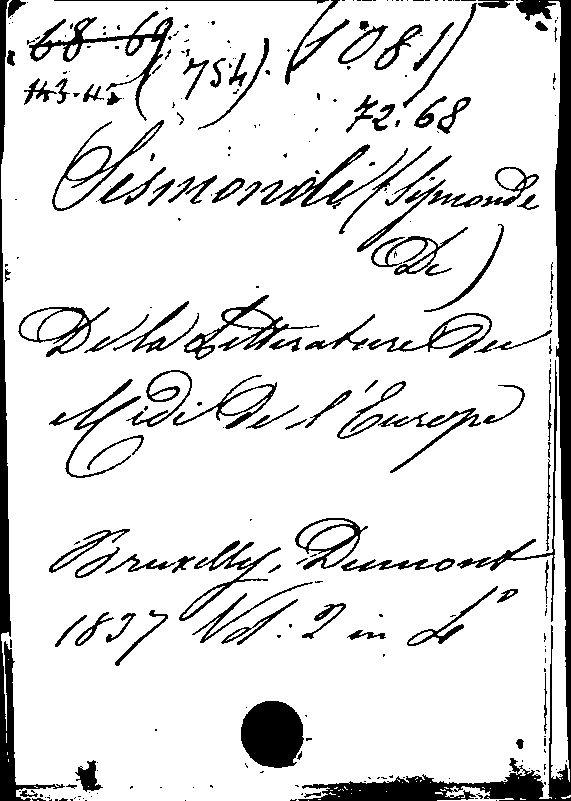 68 69
143.45 (754). (1081)
72.68
Sismondi (Sismonde
De)
De la Litterature du
Midi de l'Europe
Bruxelles, Dumont
1837 Vol: 2 in 4°